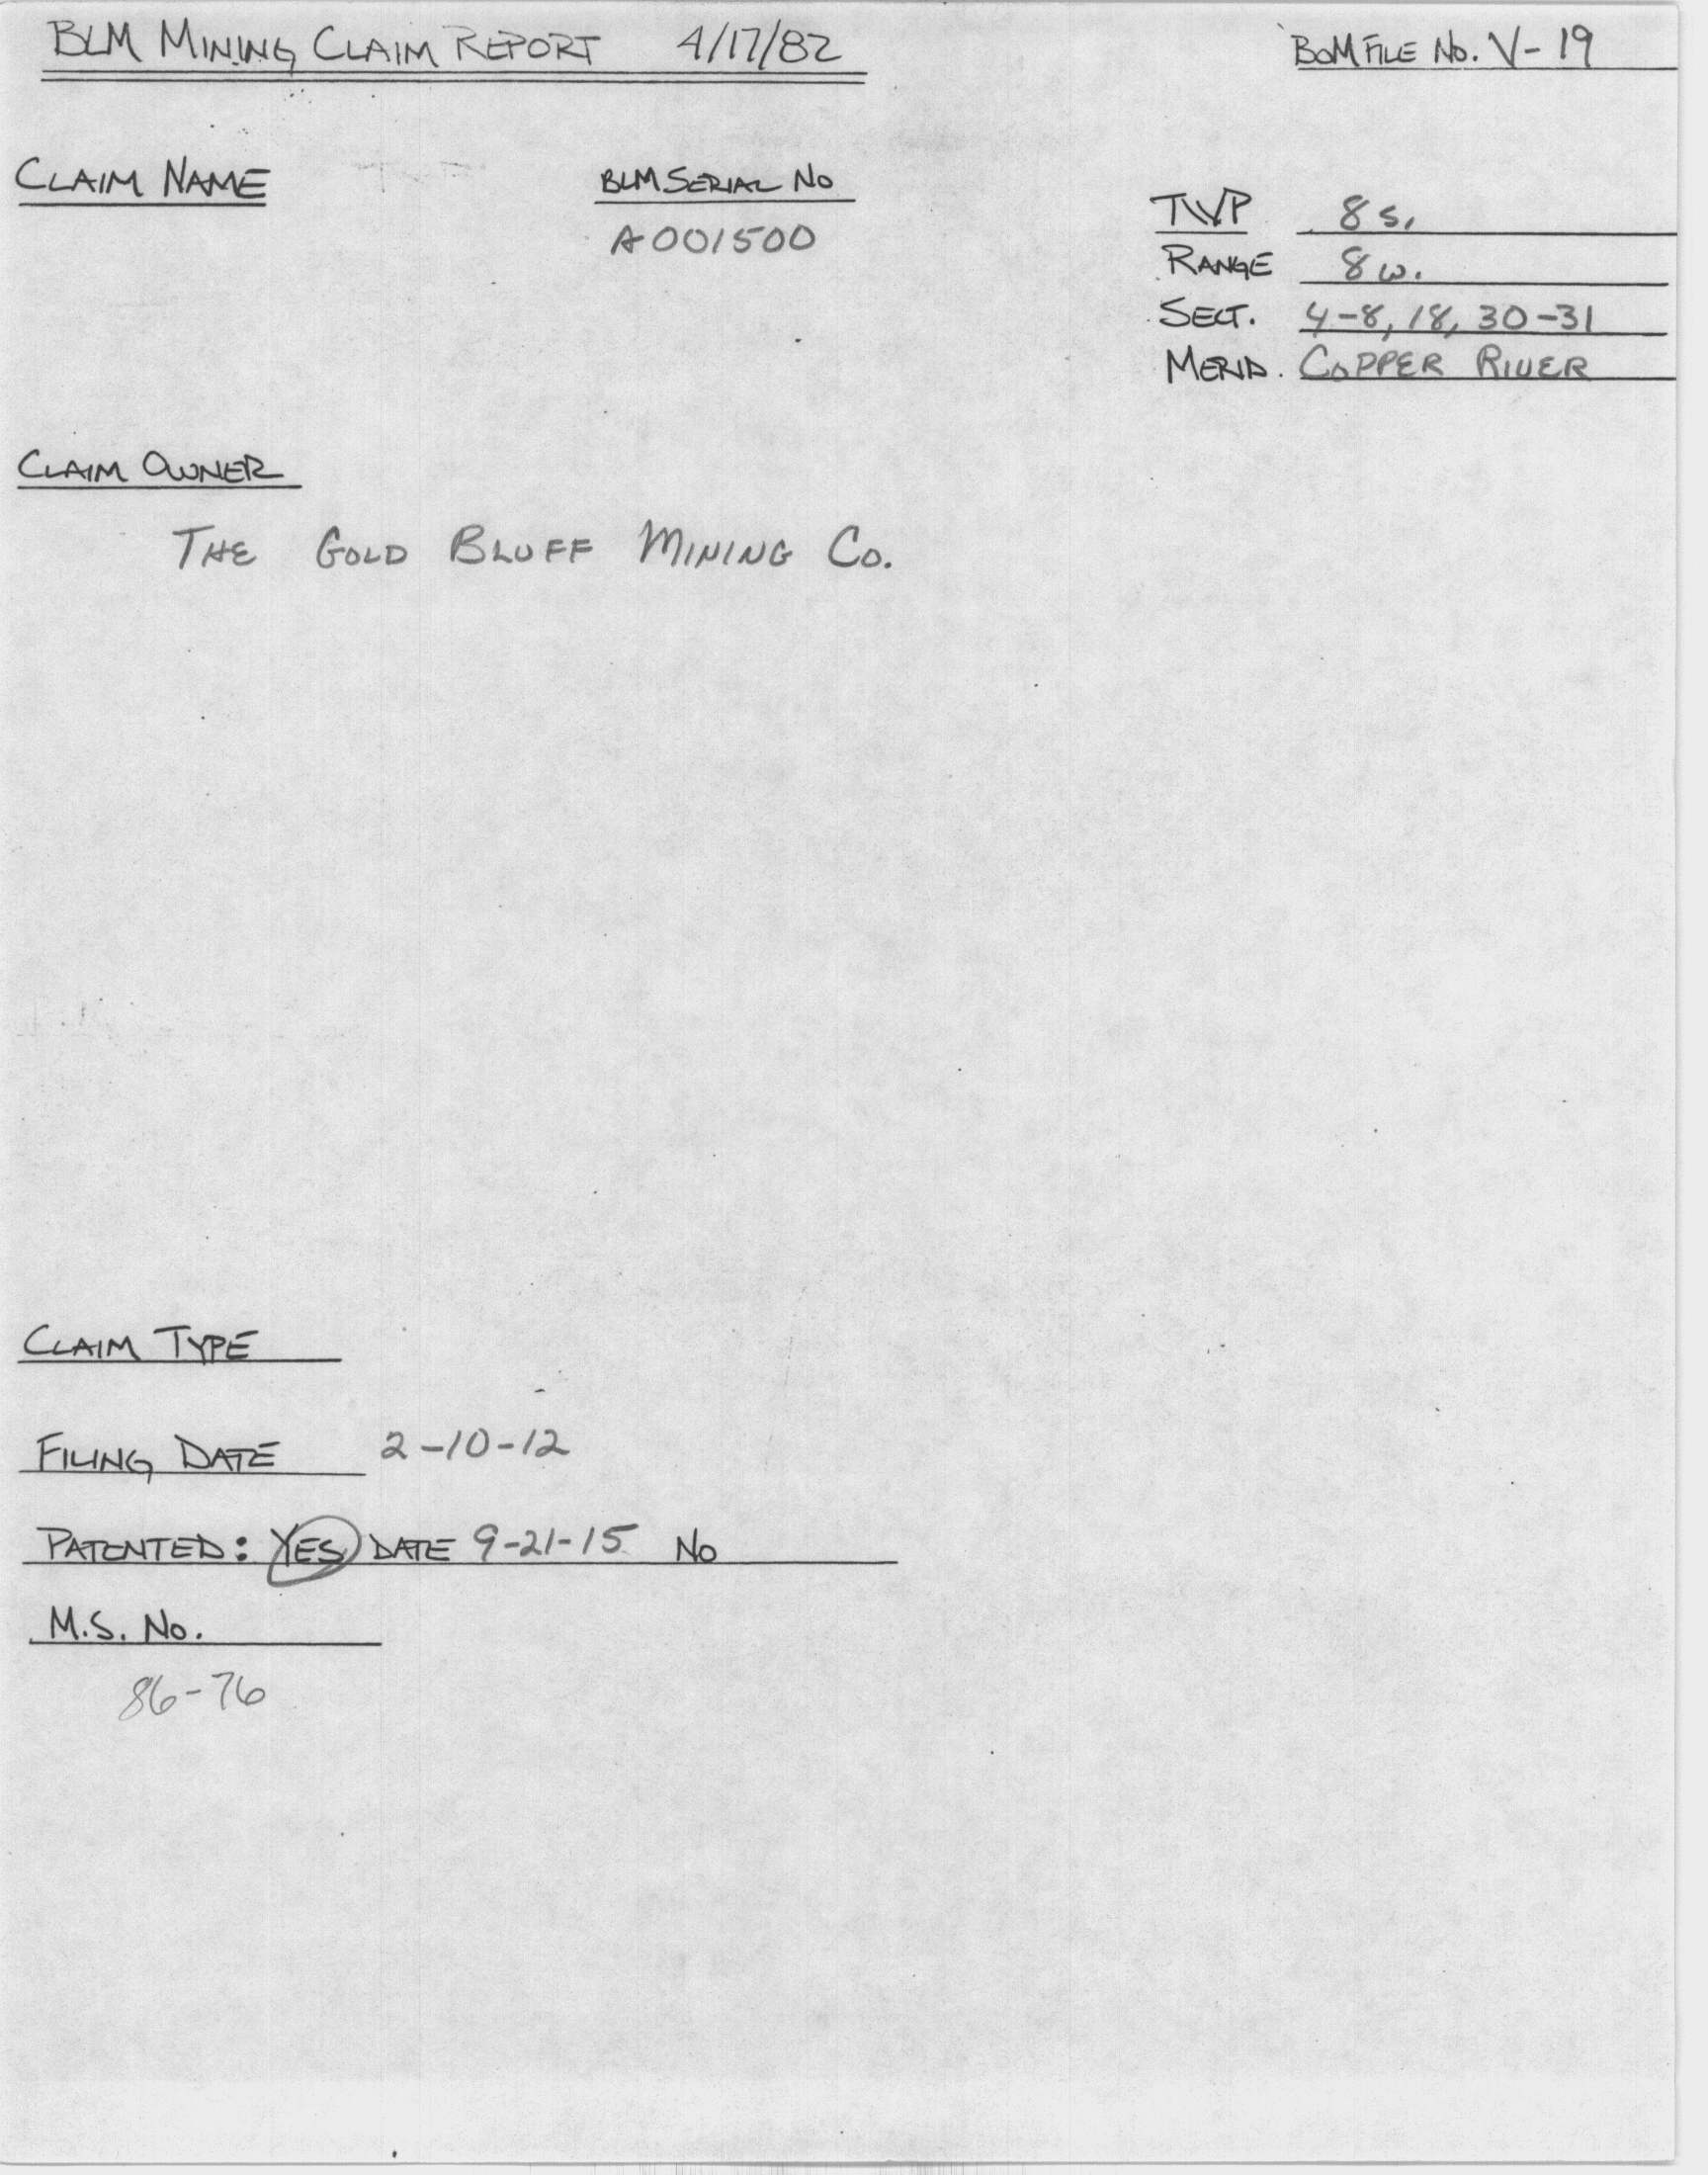 BLM MINING CLAIM REPORT 4/17/82
BOM FILE No. V-19
CLAIM NAME
BLM SERIAL No
A001500
TWP 8 S.
RANGE 8 W.
SECT. 4-8, 18, 30-31
MERID. COPPER RIVER
CLAIM OWNER
THE GOLD BLUFF MINING CO.
CLAIM TYPE
FILING DATE 2-10-12
PATENTED: YES DATE 9-21-15 No
M.S. No.
86-76